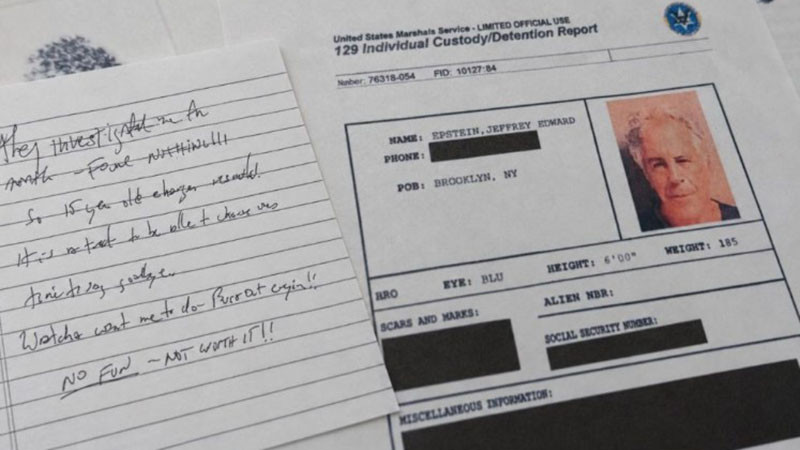 They investigated me for
month – FOUND NOTHING!!!
So 15 year old charges resulted.
It is a treat to be able to choose ones
time to say goodbye.
Watcha want me to do – Bust out cryin!!
NO FUN – NOT WORTH IT!!
United States Marshals Service - LIMITED OFFICIAL USE
129 Individual Custody/Detention Report
76318-054 FID: 10127:84
NAME: EPSTEIN, JEFFREY EDWARD
PHONE:
POB: BROOKLYN, NY
BRO EYE: BLU HEIGHT: 6'00" WEIGHT: 185
ALIEN NBR:
SCARS AND MARKS: SOCIAL SECURITY NUMBER:
MISCELLANEOUS INFORMATION: